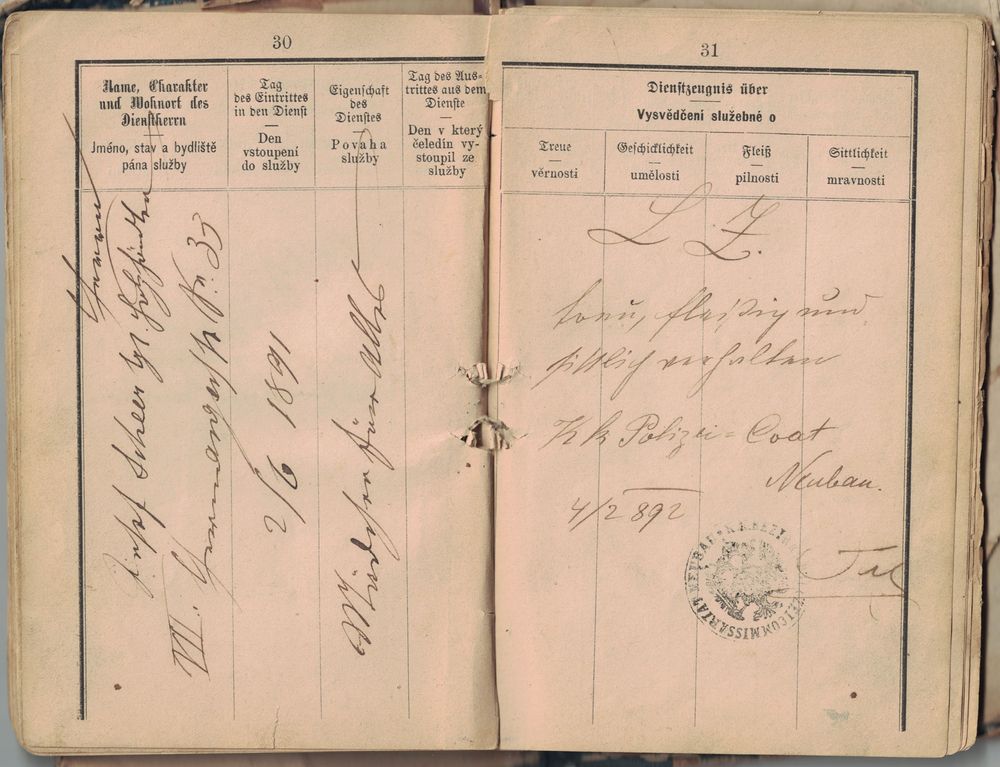 30
Name, Charakter
und Wohnort des
Dienstherrn
Jméno, stav a bydliště
pána služby
Tag
des Eintrittes
in den Dienst
Den
vstoupení
do služby
Eigenschaft
des
Dienstes
Povaha
služby
Tag des Aus-
trittes aus dem
Dienste
Den v který
čeledín vy-
stoupil ze
služby
Josef Scheer
VII. Hermangasse Nr: 33
2/6 1891
Mädchen für Alles
31
Dienstzeugnis über
Vysvědčení služebné o
Treue
věrnosti
Geschicklichkeit
umělosti
Fleiß
pilnosti
Sittlichkeit
mravnosti
L. Z.
treu, fleißig und
sittlich verhalten
K k Polizei=Coat
Neubau.
4/2 892
NEUBAU K.K. BEZIRKS POLIZEICOMMISSARIAT